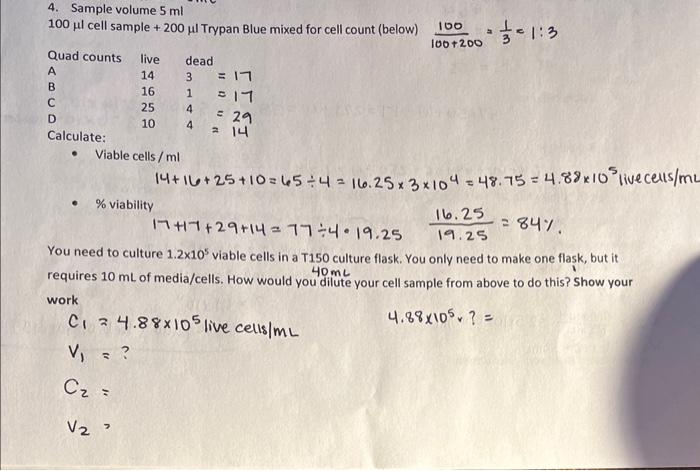 4. Sample volume 5 ml
100 µl cell sample + 200 µl Trypan Blue mixed for cell count (below) 100/100+200 = 1/3 = 1:3
Quad counts live dead
A 14 3 = 17
B 16 1 = 17
C 25 4 = 29
D 10 4 = 14
Calculate:
• Viable cells / ml
14+16+25+10=65÷4=16.25×3×10⁴=48.75=4.88×10⁵ live cells/mL
• % viability
17+17+29+14=77÷4=19.25 16.25/19.25 = 84%.
You need to culture 1.2x10⁵ viable cells in a T150 culture flask. You only need to make one flask, but it
40mL
requires 10 mL of media/cells. How would you dilute your cell sample from above to do this? Show your
work
C₁ = 4.88×10⁵ live cells/mL 4.88×10⁵ × ? =
V₁ = ?
C₂ =
V₂ =